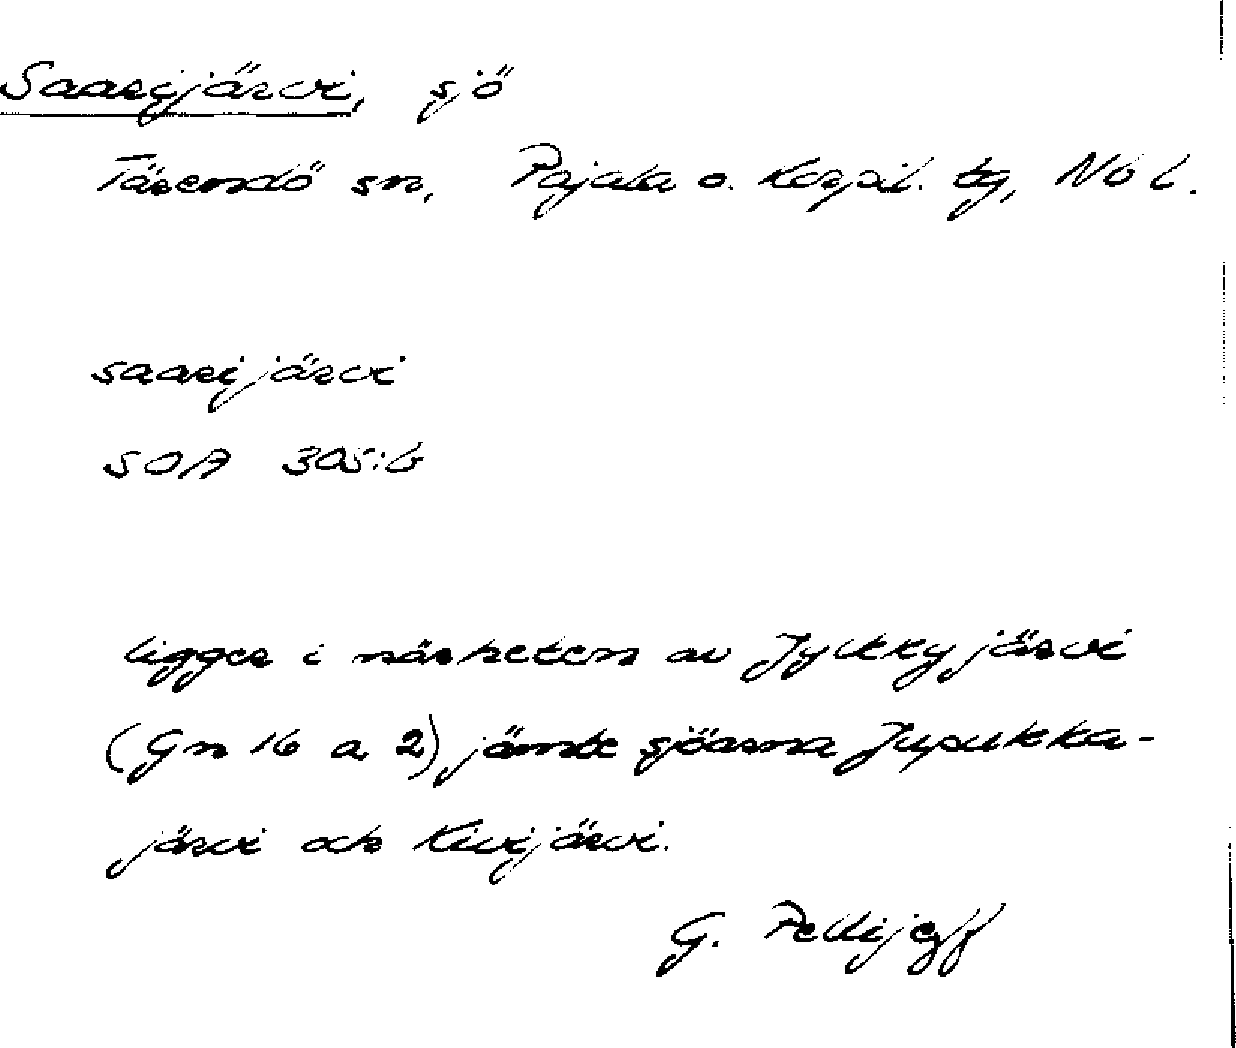 Saarijärvi, sjö
Tärendö sn, Pajala o. Korpil. tg, Nb l.
saarijärvi
SOA 305:6
ligger i närheten av Jylkkyjärvi
(Gn 16 a 2) jämte sjöarna Jupukka-
järvi och Kivijärvi.
G. Pellijeff